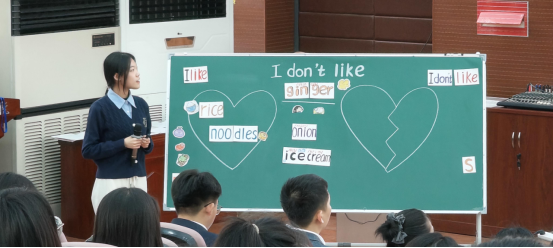 I like
I don't like
I dont like
ginger
rice
noodles
onion
ice cream
S